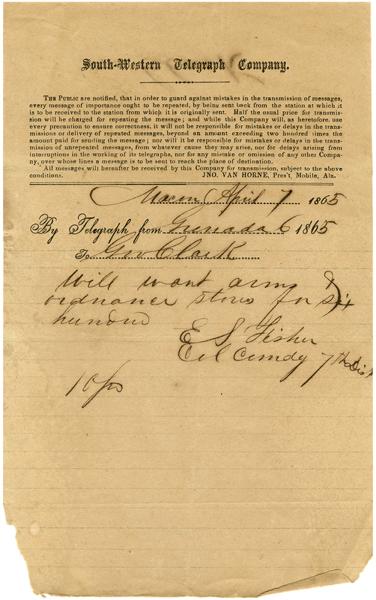 South-Western Telegraph Company.
THE PUBLIC are notified, that in order to guard against mistakes in the transmission of messages,
every message of importance ought to be repeated, by being sent back from the station at which it
is to be received to the station from which it is originally sent. Half the usual price for transmis-
sion will be charged for repeating the message; and while this Company will, as heretofore, use
every precaution to ensure correctness, it will not be responsible for mistakes or delays in the trans-
missions or delivery of repeated messages, beyond an amount exceeding two hundred times the
amount paid for sending the message; nor will it be responsible for mistakes or delays in the trans-
mission of unrepeated messages, from whatever cause they may arise, nor for delays arising from
interruptions in the working of its telegraphs, nor for any mistake or omission of any other Com-
pany, over whose lines a message is to be sent to reach the place of destination.
All messages will hereafter be received by this Company for transmission, subject to the above
conditions. JNO. VAN HORNE, Pres't, Mobile, Ala.
Macon April 7 1865
By Telegraph from Grenada 6 1865
To Gov Clark
Will want arms &
ordnance stores for six
hundred
E S Fisher
Col Comdg 7th Dist